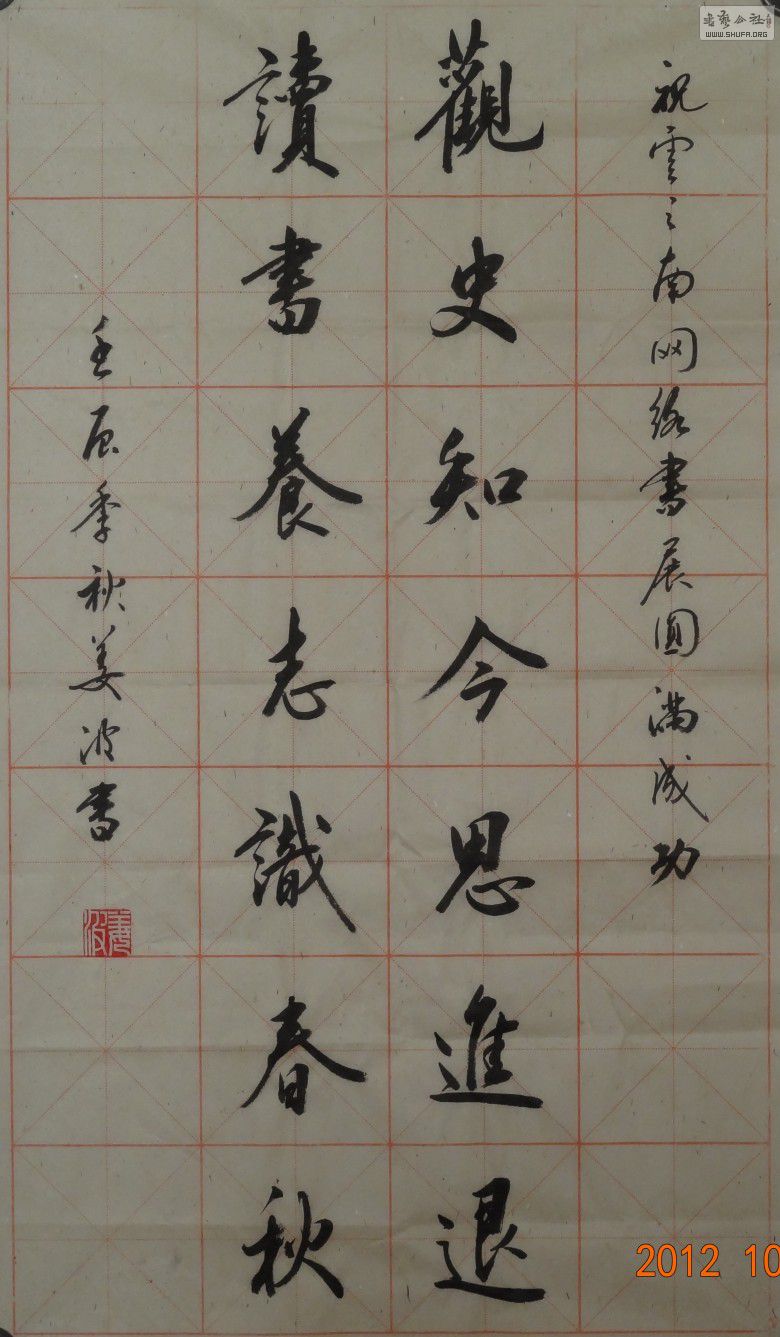 祝雲之南网络書展圆满成功
觀史知今思進退
讀書養志識春秋
壬辰季秋姜波書
姜波
书艺公社
WWW.SHUFA.ORG
2012 10